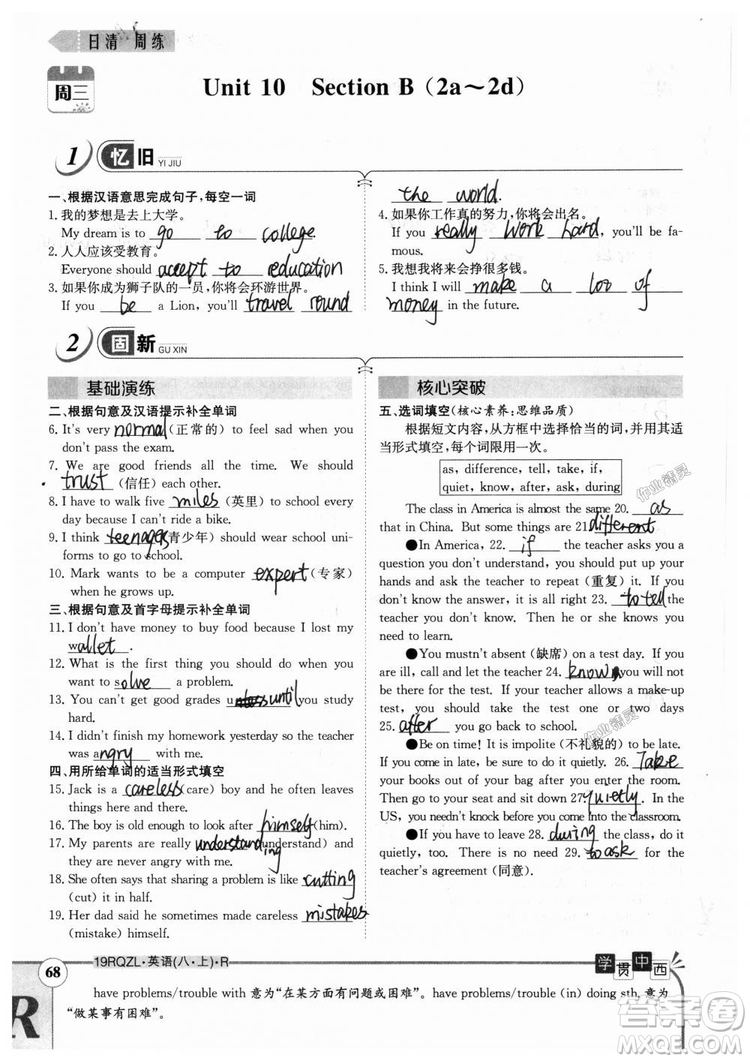 日清 周练
周三
Unit 10 Section B (2a～2d)
1 忆旧 YI JIU
一、根据汉语意思完成句子,每空一词
1. 我的梦想是去上大学。
My dream is to go to college.
2. 人人应该受教育。
Everyone should accept to reducation.
3. 如果你成为狮子队的一员,你将会环游世界。
If you be a Lion, you'll travel round
the world.
4. 如果你工作真的努力,你将会出名。
If you really work hard, you'll be fa-
mous.
5. 我想我将来会挣很多钱。
I think I will make a loo of
money in the future.
2 固新 GU XIN
基础演练
二、根据句意及汉语提示补全单词
6. It's very normal (正常的) to feel sad when you
don't pass the exam.
7. We are good friends all the time. We should
trust (信任) each other.
8. I have to walk five miles (英里) to school every
day because I can't ride a bike.
9. I think teenages (青少年) should wear school uni-
forms to go to school.
10. Mark wants to be a computer expert (专家)
when he grows up.
三、根据句意及首字母提示补全单词
11. I don't have money to buy food because I lost my
wallet.
12. What is the first thing you should do to
solve a problem.
13. You can't get good grades until you study
hard.
14. I didn't finish my homework yesterday so the teacher
was angry with me.
四、用所给单词的适当形式填空
15. Jack is a careless (care) boy and he often forgets
things.
16. The boy is old enough to look after himself (him).
17. My parents are really understanding (understand) and
they are never angry with me.
18. She often says that sharing a problem is like cutting
(cut) it in half.
19. Her dad said he sometimes made careless mistakes
(mistake) himself.
核心突破
五、选词填空(核心素养:思维品质)
根据短文内容,从方框中选择恰当的词,并用其适
当形式填空,每个词限用一次。
as, difference, tell, take, if,
quiet, know, after, ask, during
The class in America is almost the same 20. as
that in China. But some things are 21. different
●In America, 22. if the teacher asks you a
question during the class, you should put up your
hands and ask the teacher to repeat (重复) it. If you
don't know the answer, it is all right 23. to tell the
teacher you don't know. Then he or she knows you
need to learn.
●You mustn't absent (缺席) on a test day. If you
are ill, call and let the teacher 24. know. If you miss a
test, you should take the test one or two days
25. after you go back to school.
●Be on time! It is impolite (不礼貌的) to be late.
If you are late, please do it quietly. 26. Take
your books out of your bag after you enter the room.
Then go to your seat and sit down 27. quietly. In the
US, you needn't knock before you come into the classroom.
●If you have to leave 28. during the class, do it
quietly, too. There is no need 29. to ask for the
teacher's agreement (同意).
68
19RQZL·英语(八·上)·R
学贯中西
have problems/trouble with 意为“在某方面有问题或困难”。have problems/trouble (in) doing sth. 意为
“做某事有困难”。
作业精灵
作业精灵
答案圈
MXQE.COM